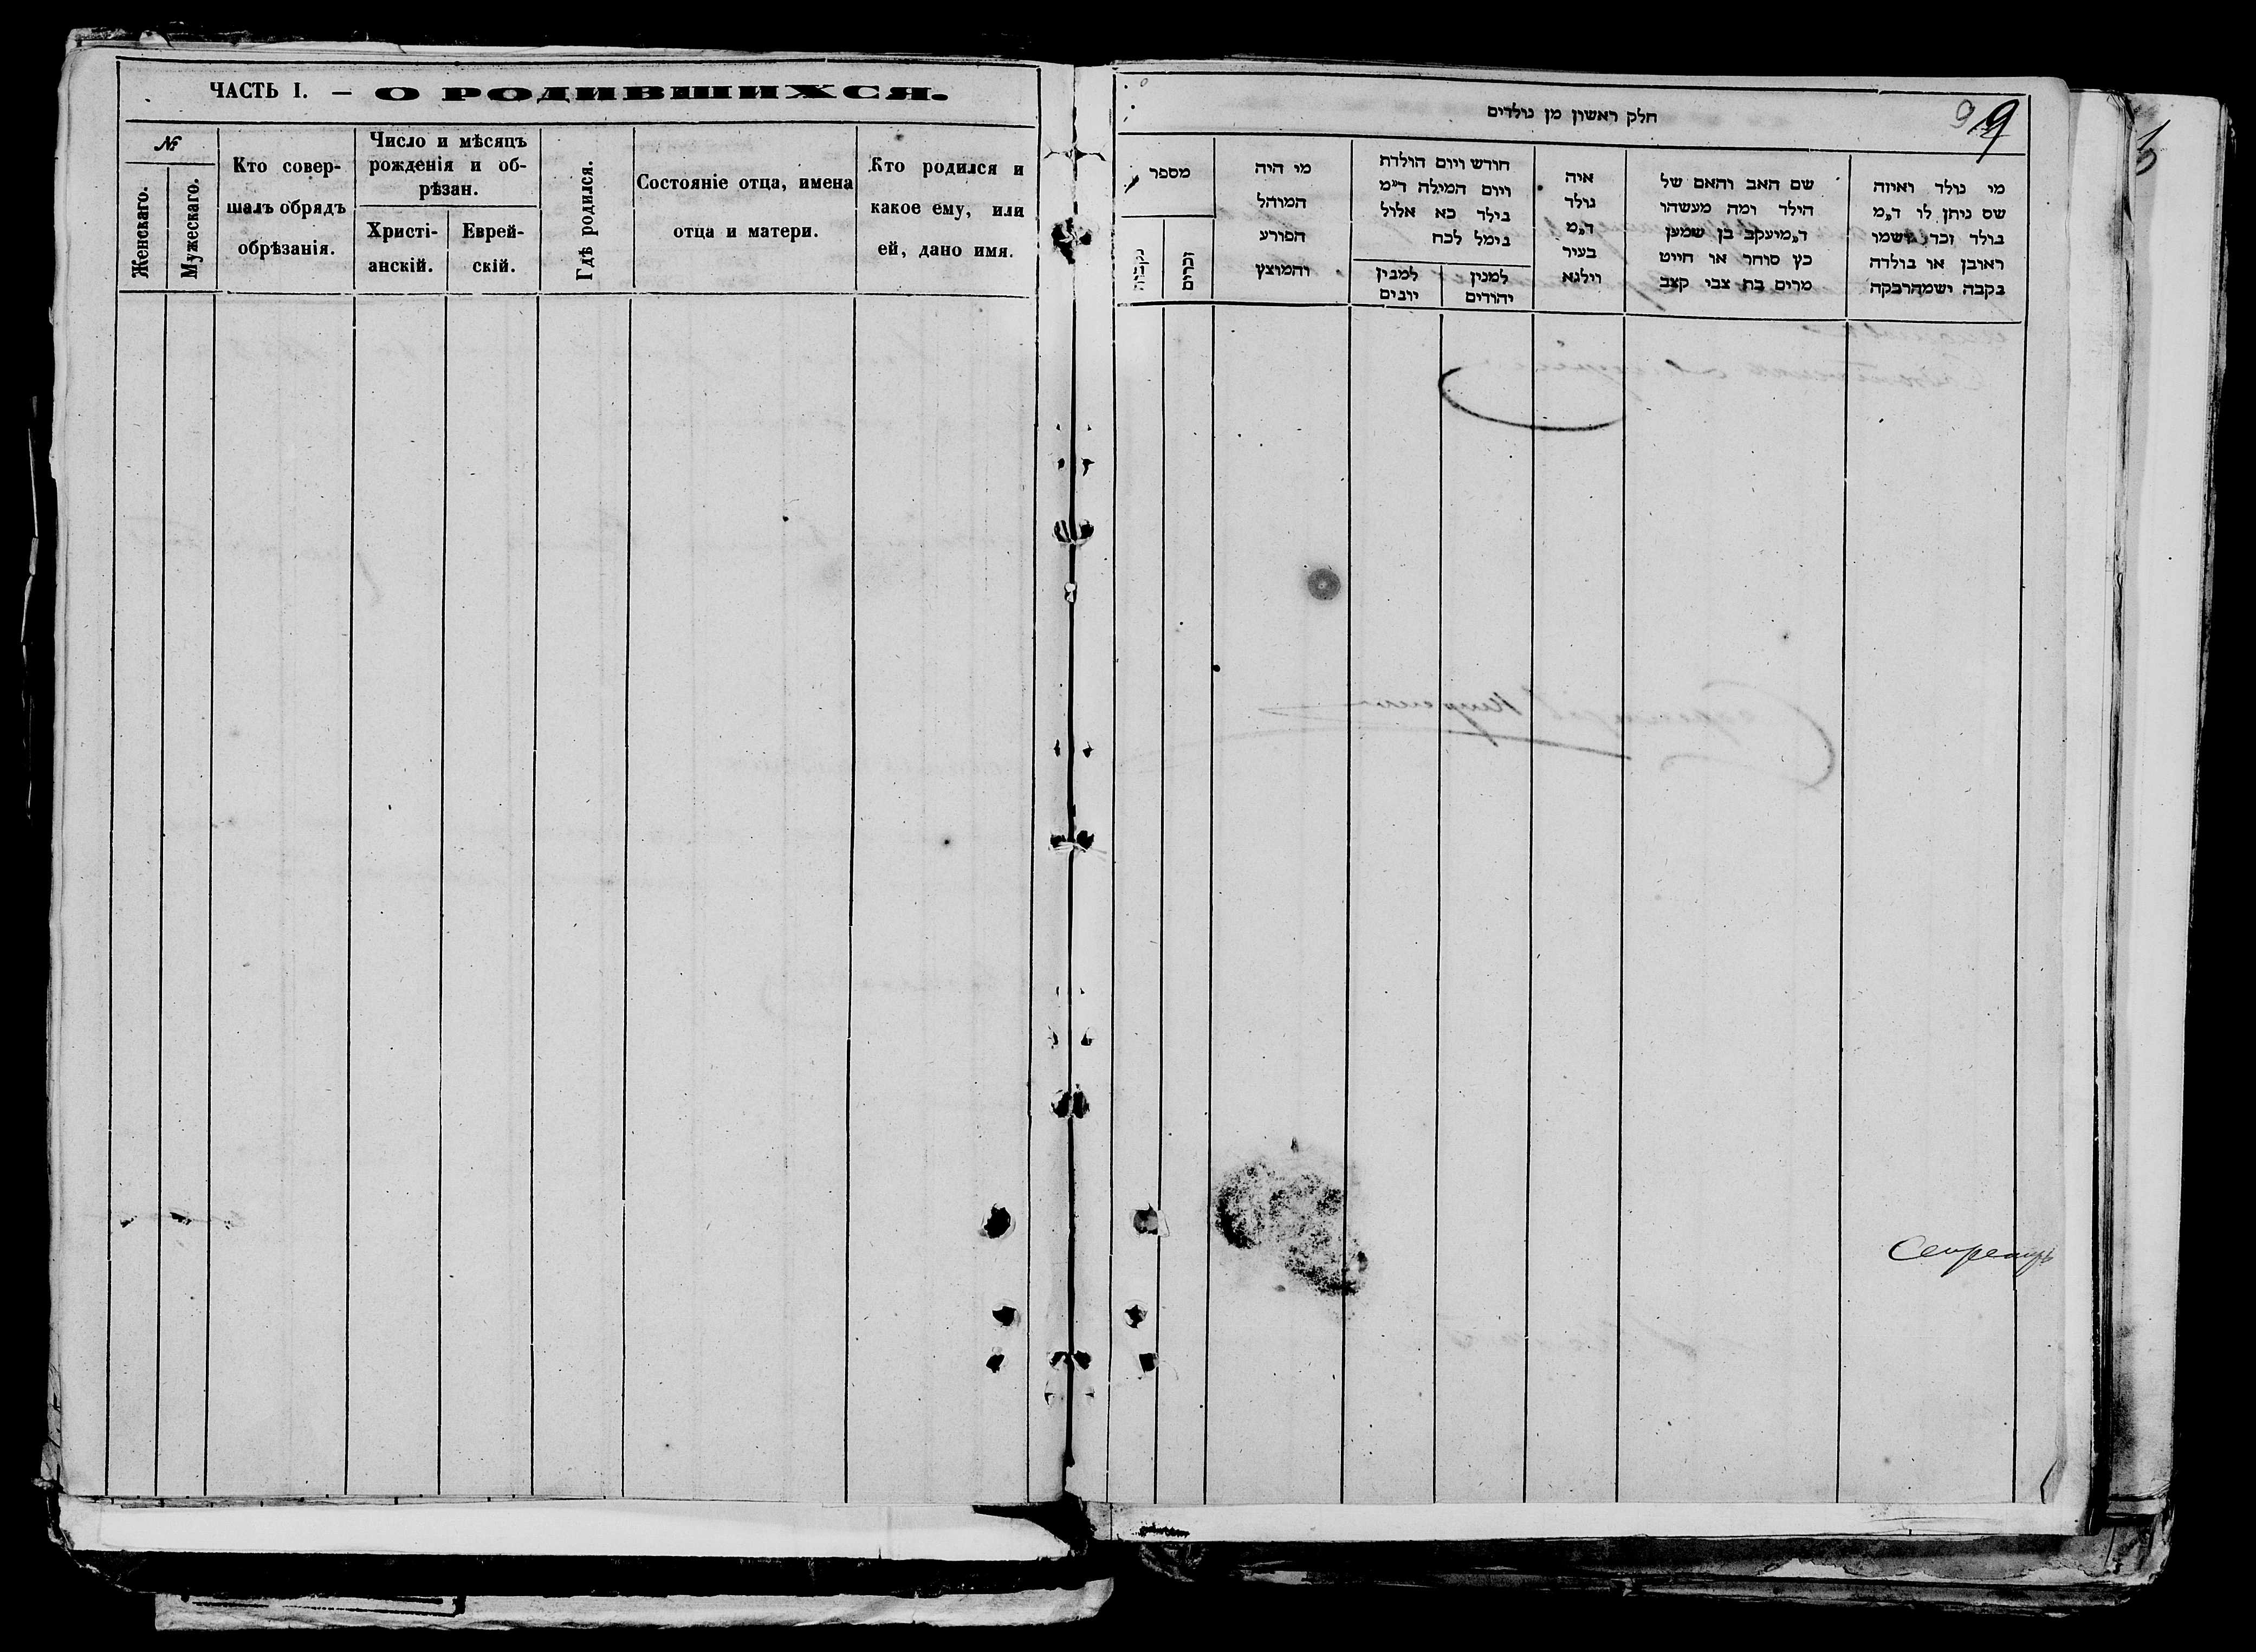 ЧАСТЬ I. — О РОДИВШИХСЯ.
№
Женскаго.
Мужескаго.
Кто совер-
шалъ обрядъ
обрѣзанія.
Число и мѣсяцъ
рожденія и об-
рѣзан.
Христі-
анскій.
Еврей-
скій.
Гдѣ родился.
Состояніе отца, имена
отца и матери.
Кто родился и
какое ему, или
ей, дано имя.
חלק ראשון מן נולדים
9
9
מספר
נקבות
זכרים
מי היה
המוהל
הפורע
והמוצץ
חודש ויום הולדת
ויום המילה ד״מ
בילד כא אלול
נימל לכח
למנין
יהודים
למנין
יונים
איה
נולד
ד״מ
בעיר
ווילנא
שם האב והאם של
הילד ומה מעשהו
ד״מ יעקב בן שמען
כץ סוחר או חייט
מרים בת צבי קצב
מי נולד ואיזה
שם ניתן לו ד״מ
נולד זכר ושמו
ראובן או נולדה
נקבה ושמה רבקה
Секретарь